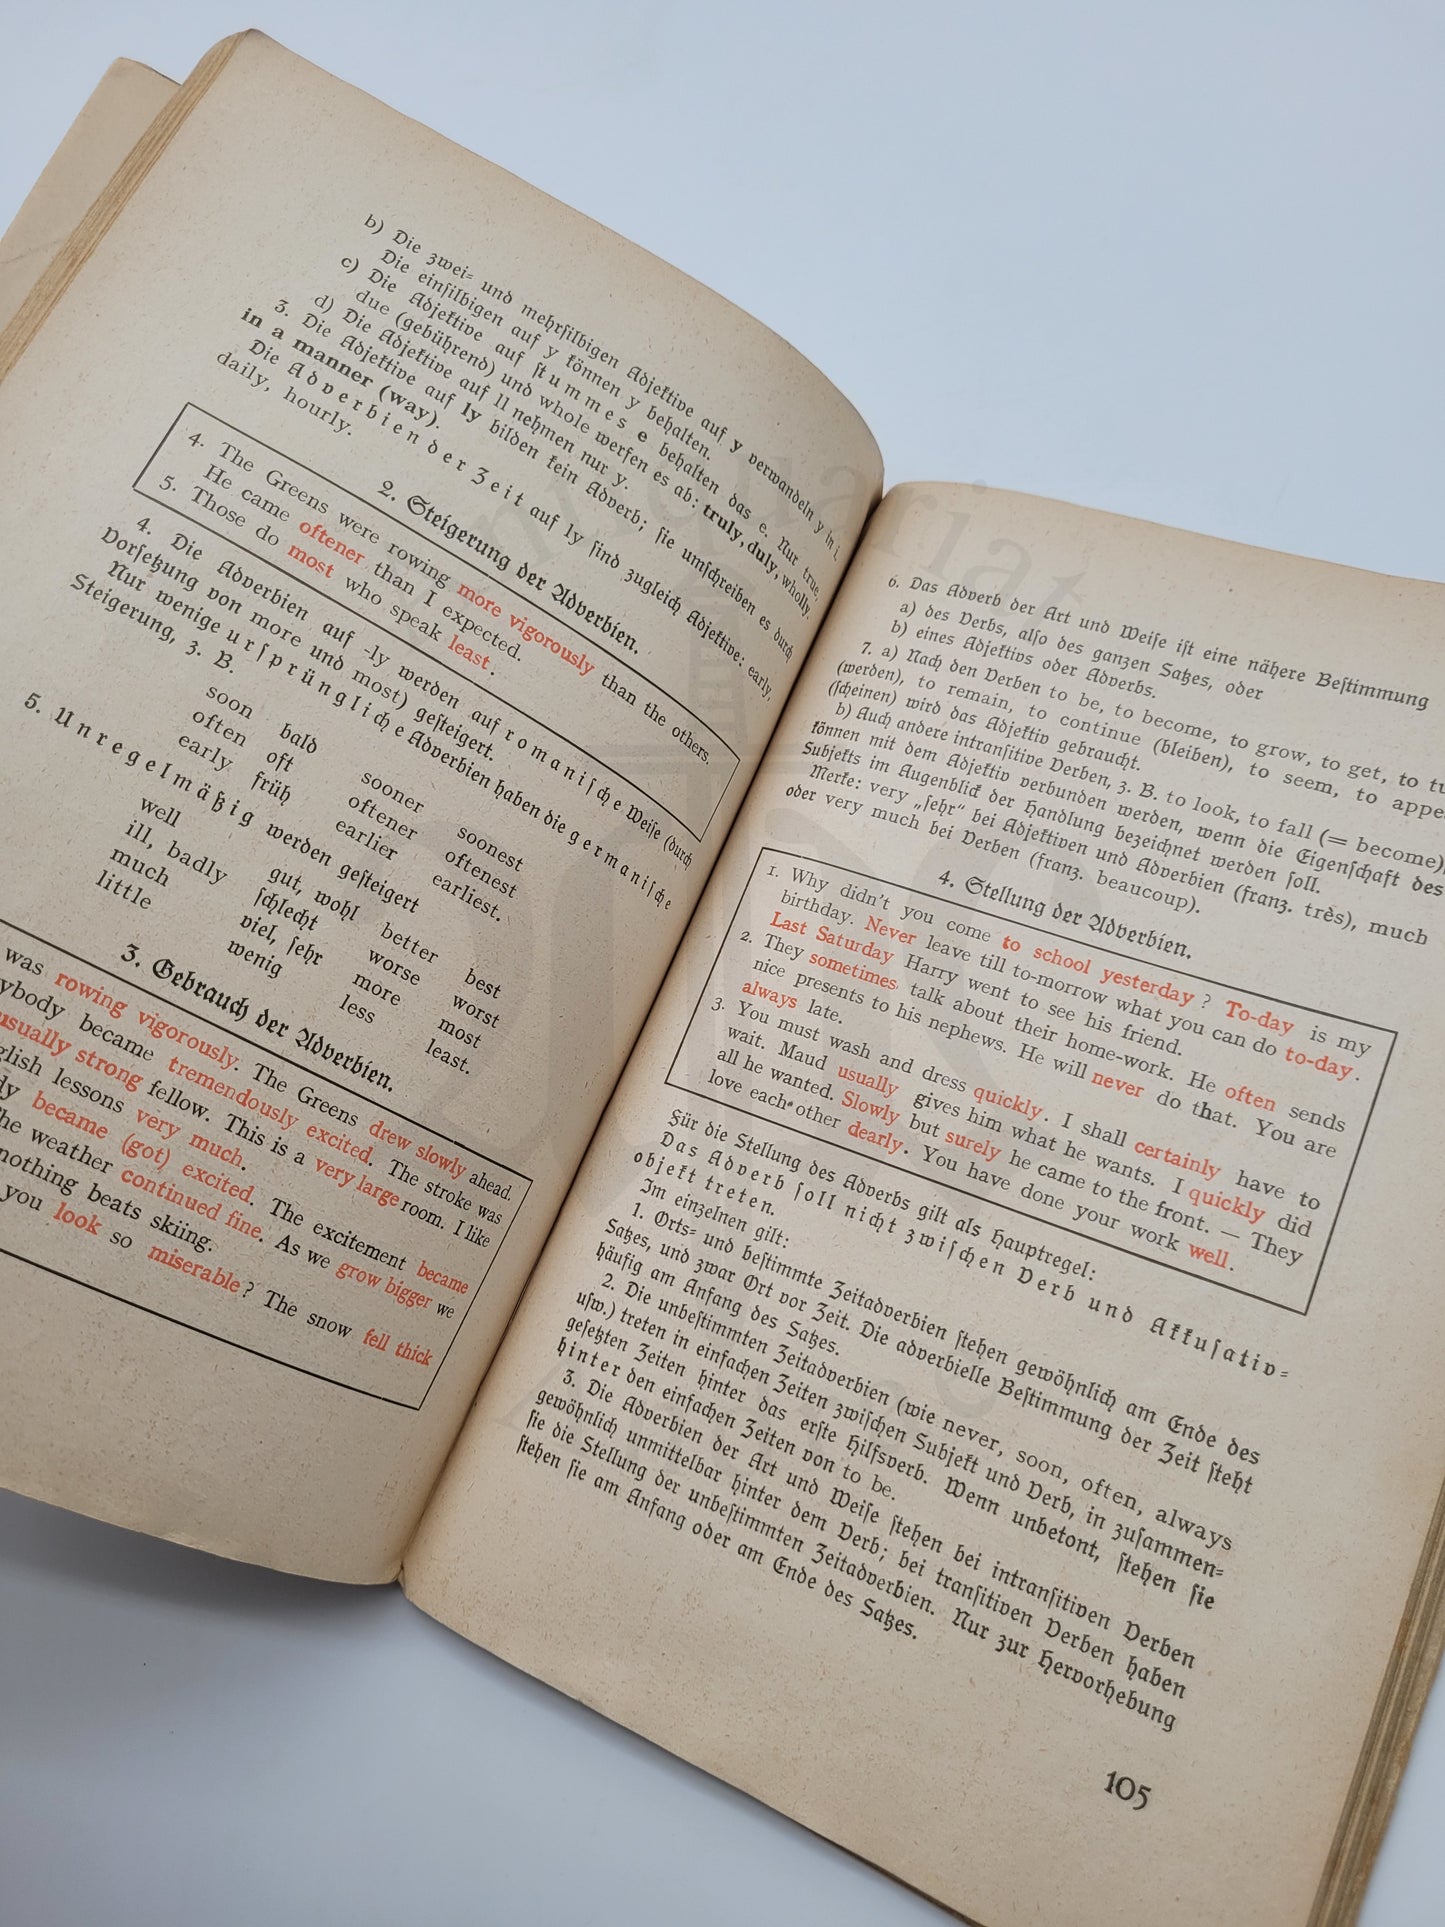 b) Die zwei- und mehrsilbigen Adjektive auf y verwandeln y in i.
Die einsilbigen auf y können y behalten.
c) Die Adjektive auf stummes e behalten das e. Nur true,
due (gebührend) und whole werfen es ab: truly, duly, wholly.
d) Die Adjektive auf ll nehmen nur y.
3. Die Adjektive auf ly bilden kein Adverb; sie umschreiben es durch
in a manner (way).
Die Adverbien der Zeit auf ly sind zugleich Adjektive: early,
daily, hourly.
2. Steigerung der Adverbien.
4. The Greens were rowing more vigorously than the others.
He came oftener than I expected.
5. Those do most who speak least.
4. Die Adverbien auf -ly werden auf romanische Weise (durch
Vorsetzung von more und most) gesteigert.
Nur wenige ursprüngliche Adverbien haben die germanische
Steigerung, z. B.
soon bald sooner soonest
often oft oftener oftenest
early früh earlier earliest.
5. Unregelmäßig werden gesteigert
well gut, wohl better best
ill, badly schlecht worse worst
much viel, sehr more most
little wenig less least.
3. Gebrauch der Adverbien.
was rowing vigorously. The Greens drew slowly ahead.
ybody became tremendously excited. The stroke was
usually strong fellow. This is a very large room. I like
glish lessons very much.
became (got) excited. The excitement became
he weather continued fine. As we grow bigger we
nothing beats skiing.
you look so miserable? The snow fell thick
6. Das Adverb der Art und Weise ist eine nähere Bestimmung
a) des Verbs, also des ganzen Satzes, oder
b) eines Adjektivs oder Adverbs.
7. a) Nach den Verben to be, to become, to grow, to get, to tu
(werden), to remain, to continue (bleiben), to seem, to appe
(scheinen) wird das Adjektiv gebraucht.
b) Auch andere intransitive Verben, z. B. to look, to fall (= become),
können mit dem Adjektiv verbunden werden, wenn die Eigenschaft des
Subjekts im Augenblick der Handlung bezeichnet werden soll.
Merke: very „sehr“ bei Adjektiven und Adverbien (franz. très), much
oder very much bei Verben (franz. beaucoup).
4. Stellung der Adverbien.
1. Why didn't you come to school yesterday? To-day is my
birthday. Never leave till to-morrow what you can do to-day.
Last Saturday Harry went to see his friend.
2. They sometimes talk about their home-work. He often sends
nice presents to his nephews. He will never do that. You are
always late.
3. You must wash and dress quickly. I shall certainly have to
wait. Maud usually gives him what he wants. I quickly did
all he wanted. Slowly but surely he came to the front. — They
love each other dearly. You have done your work well.
Für die Stellung des Adverbs gilt als Hauptregel:
Das Adverb soll nicht zwischen Verb und Akkusativ-
objekt treten.
Im einzelnen gilt:
1. Orts- und bestimmte Zeitadverbien stehen gewöhnlich am Ende des
Satzes, und zwar Ort vor Zeit. Die adverbielle Bestimmung der Zeit steht
häufig am Anfang des Satzes.
2. Die unbestimmten Zeitadverbien (wie never, soon, often, always
usw.) treten in einfachen Zeiten zwischen Subjekt und Verb, in zusammen-
gesetzten Zeiten hinter das erste Hilfsverb. Wenn unbetont, stehen sie
hinter den einfachen Zeiten von to be.
3. Die Adverbien der Art und Weise stehen bei intransitiven Verben
gewöhnlich unmittelbar hinter dem Verb; bei transitiven Verben haben
sie die Stellung der unbestimmten Zeitadverbien. Nur zur Hervorhebung
stehen sie am Anfang oder am Ende des Satzes.
105